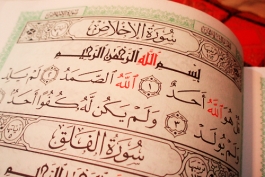 سُورَةُ الْإِخْلَاصِ
بِسْمِ اللَّهِ الرَّحْمَٰنِ الرَّحِيمِ
قُلْ هُوَ اللَّهُ أَحَدٌ ١ اللَّهُ الصَّمَدُ ٢ لَمْ يَلِدْ
وَلَمْ يُولَدْ ٣ وَلَمْ يَكُنْ لَهُ كُفُوًا أَحَدٌ
سُورَةُ الْفَلَقِ